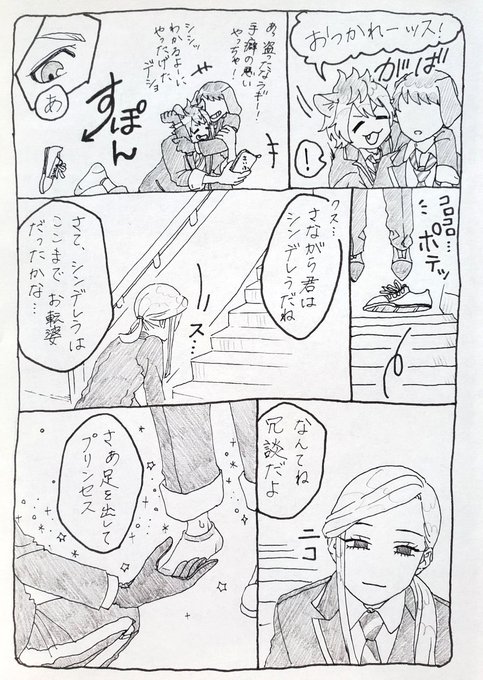 おつかれーッス!
がば
!
あ、盗ったなラギー!
手癖の悪い
やっちゃ!
シシッ
わかるよーに
やったげた
デショ
すぽん
あ
コロコロ…
ポテッ
クス…
さながら君は
シンデレラだね
ス…
さて、シンデレラは
ここまで お転婆
だったかな…
なんてね
冗談だよ
ニコ
さあ足を出して
プリンセス